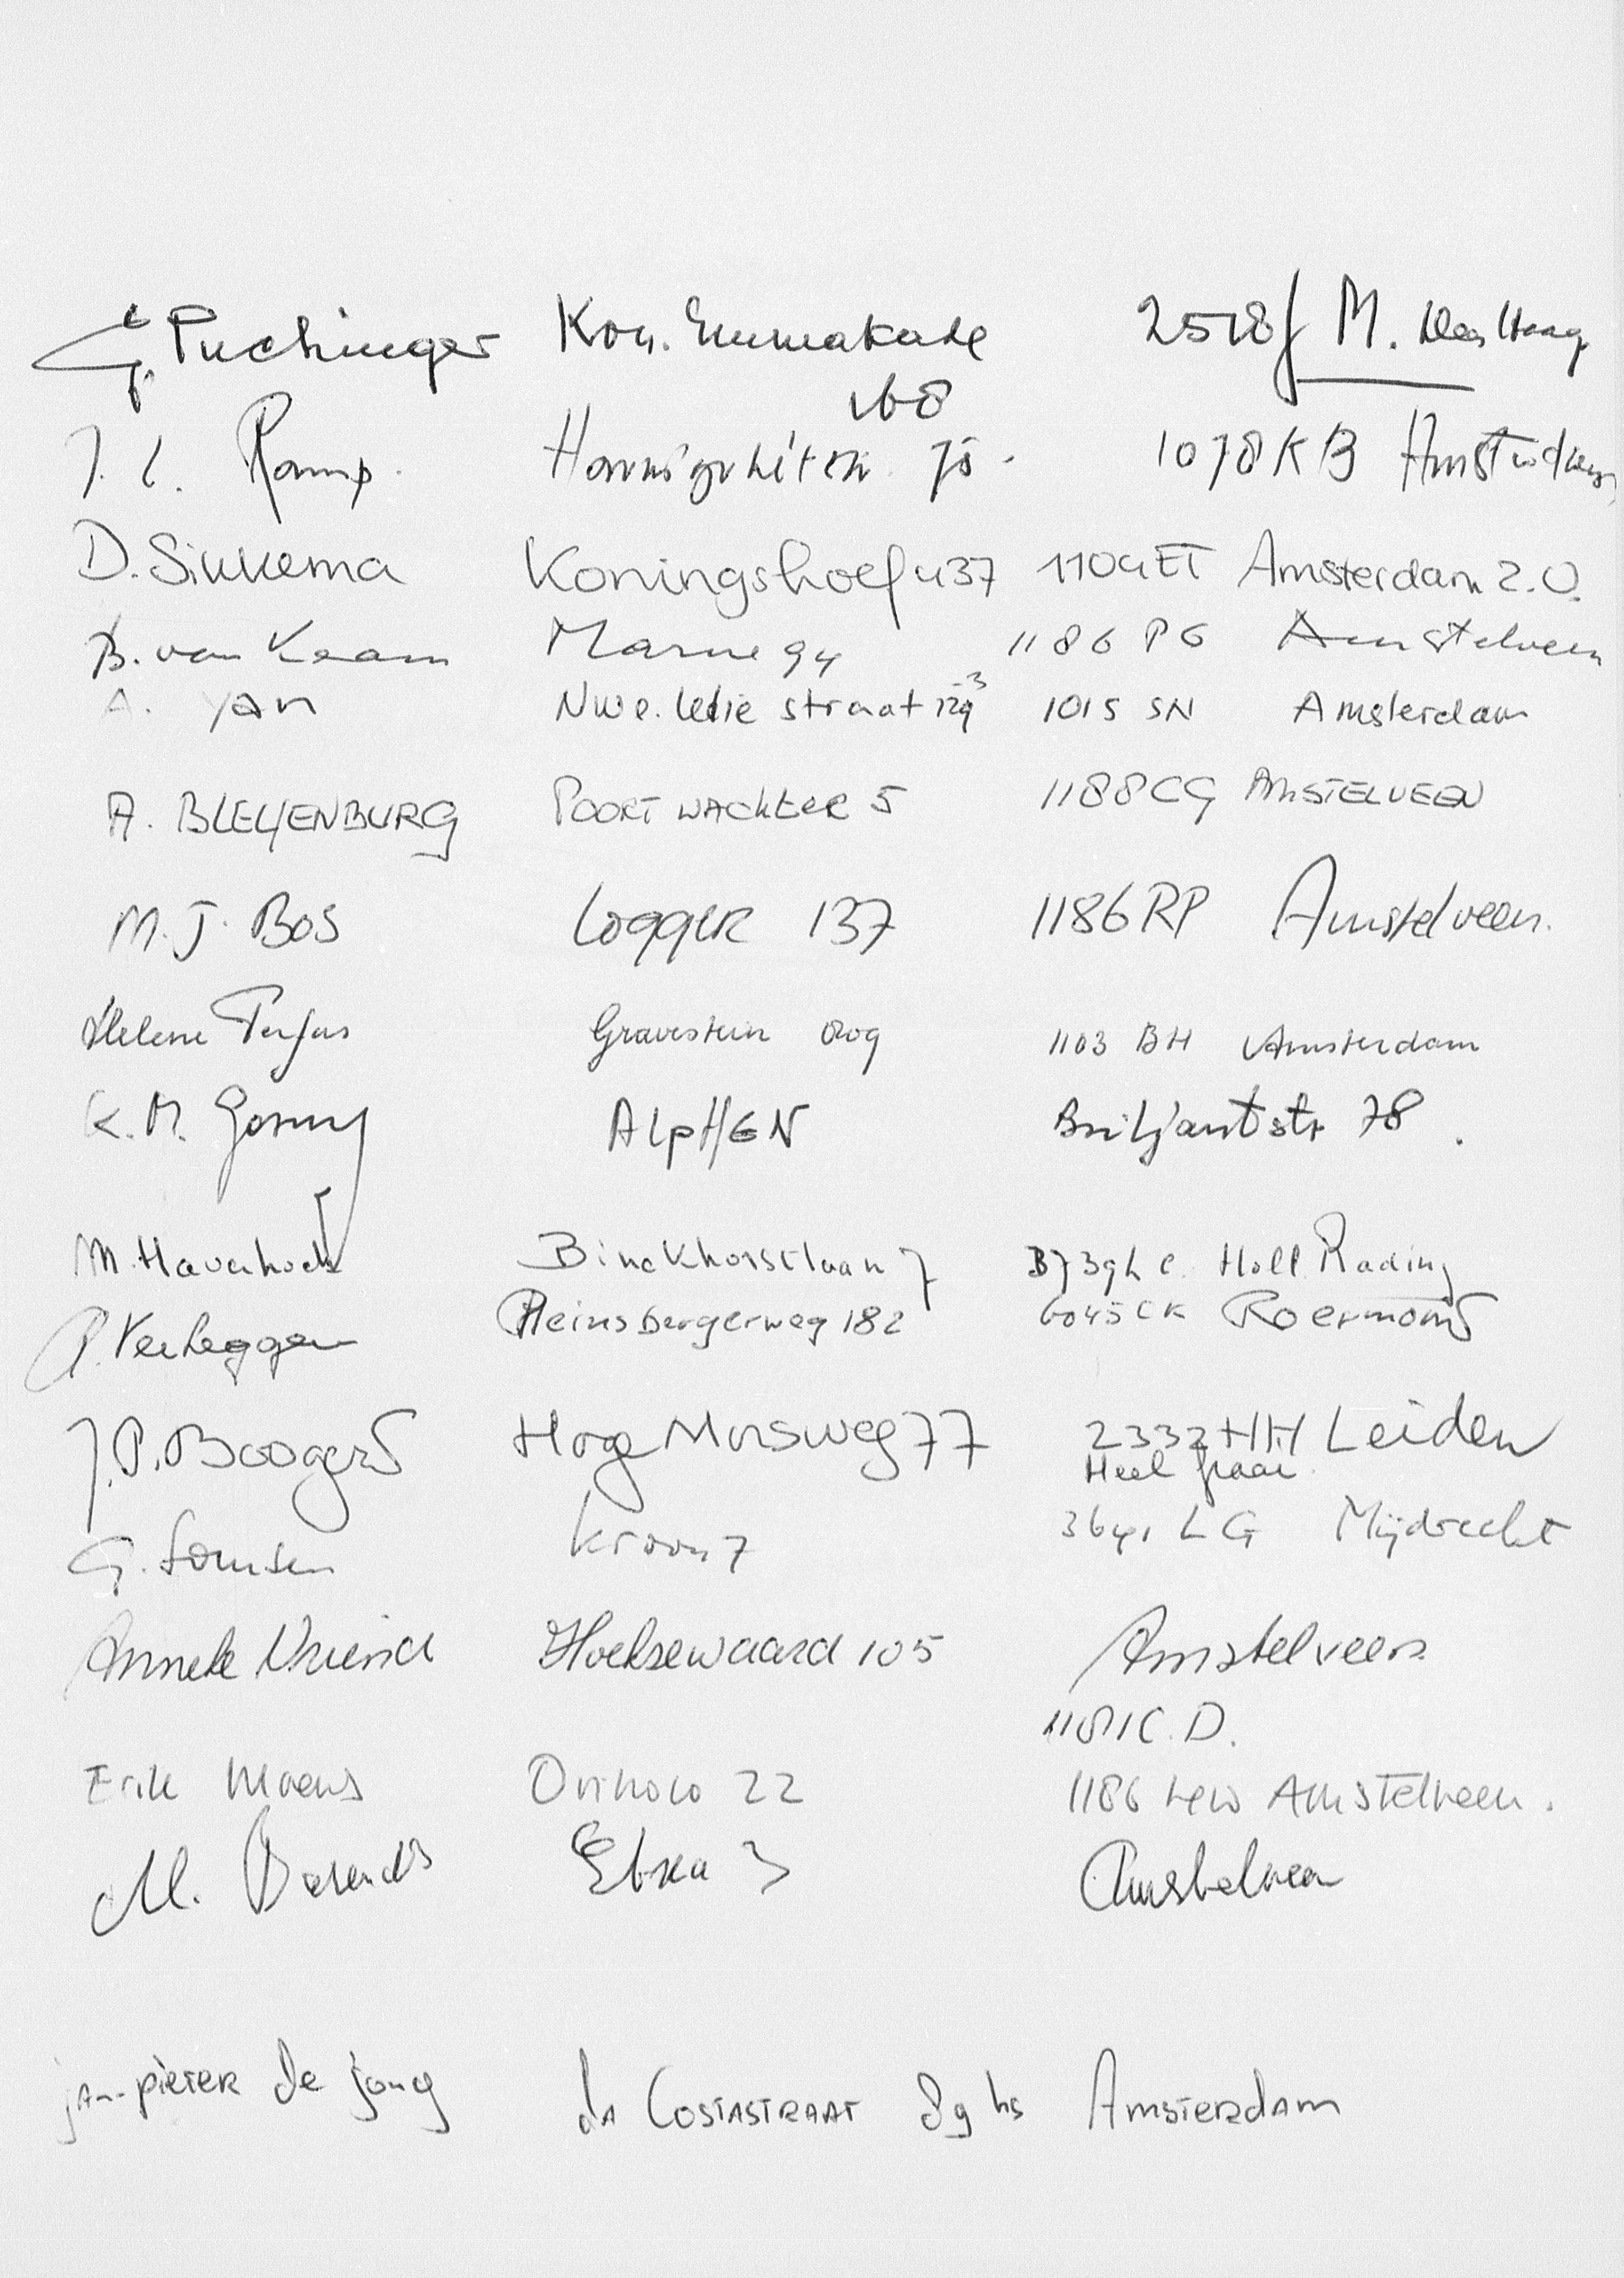 G. Puchinger Kon. Emmakade 2518 J M. Den Haag
168
J. C. Ramp. 75 - 1078 KB Amsterdam
D. Sikkema Koningshoef 437 1104ET Amsterdam Z.O.
B. van Kaam Marne 94 1186 PG Amstelveen
A. Yan Nwe. Lelie straat 129 -3 1015 SN Amsterdam
A. BLEYENBURG POORTWACHTER 5 1188CG AMSTELVEEN
M. J. Bos Logger 137 1186RP Amstelveen.
Helene Gravestein 1103 BH Amsterdam
K. M. AlpHEN Briljantstr 78.
M. Haverhoek Binckhorstlaan 7 Holl. Rading
P. Verheggen Heinsbergerweg 182 6045CK Roermond
J.P. Boogerd Hoge Morsweg 77 2332HH Leiden
Heel graag
G. Somsen Kroon 7 3641 LG Mijdrecht
Anneke Vriend Hoeksewaard 105 Amstelveen
1181 C.D.
Erik Orinoco 22 1186 Amstelveen.
M. Barends Amstelveen
jan-pieter de jong da Costastraat 89 hs Amsterdam